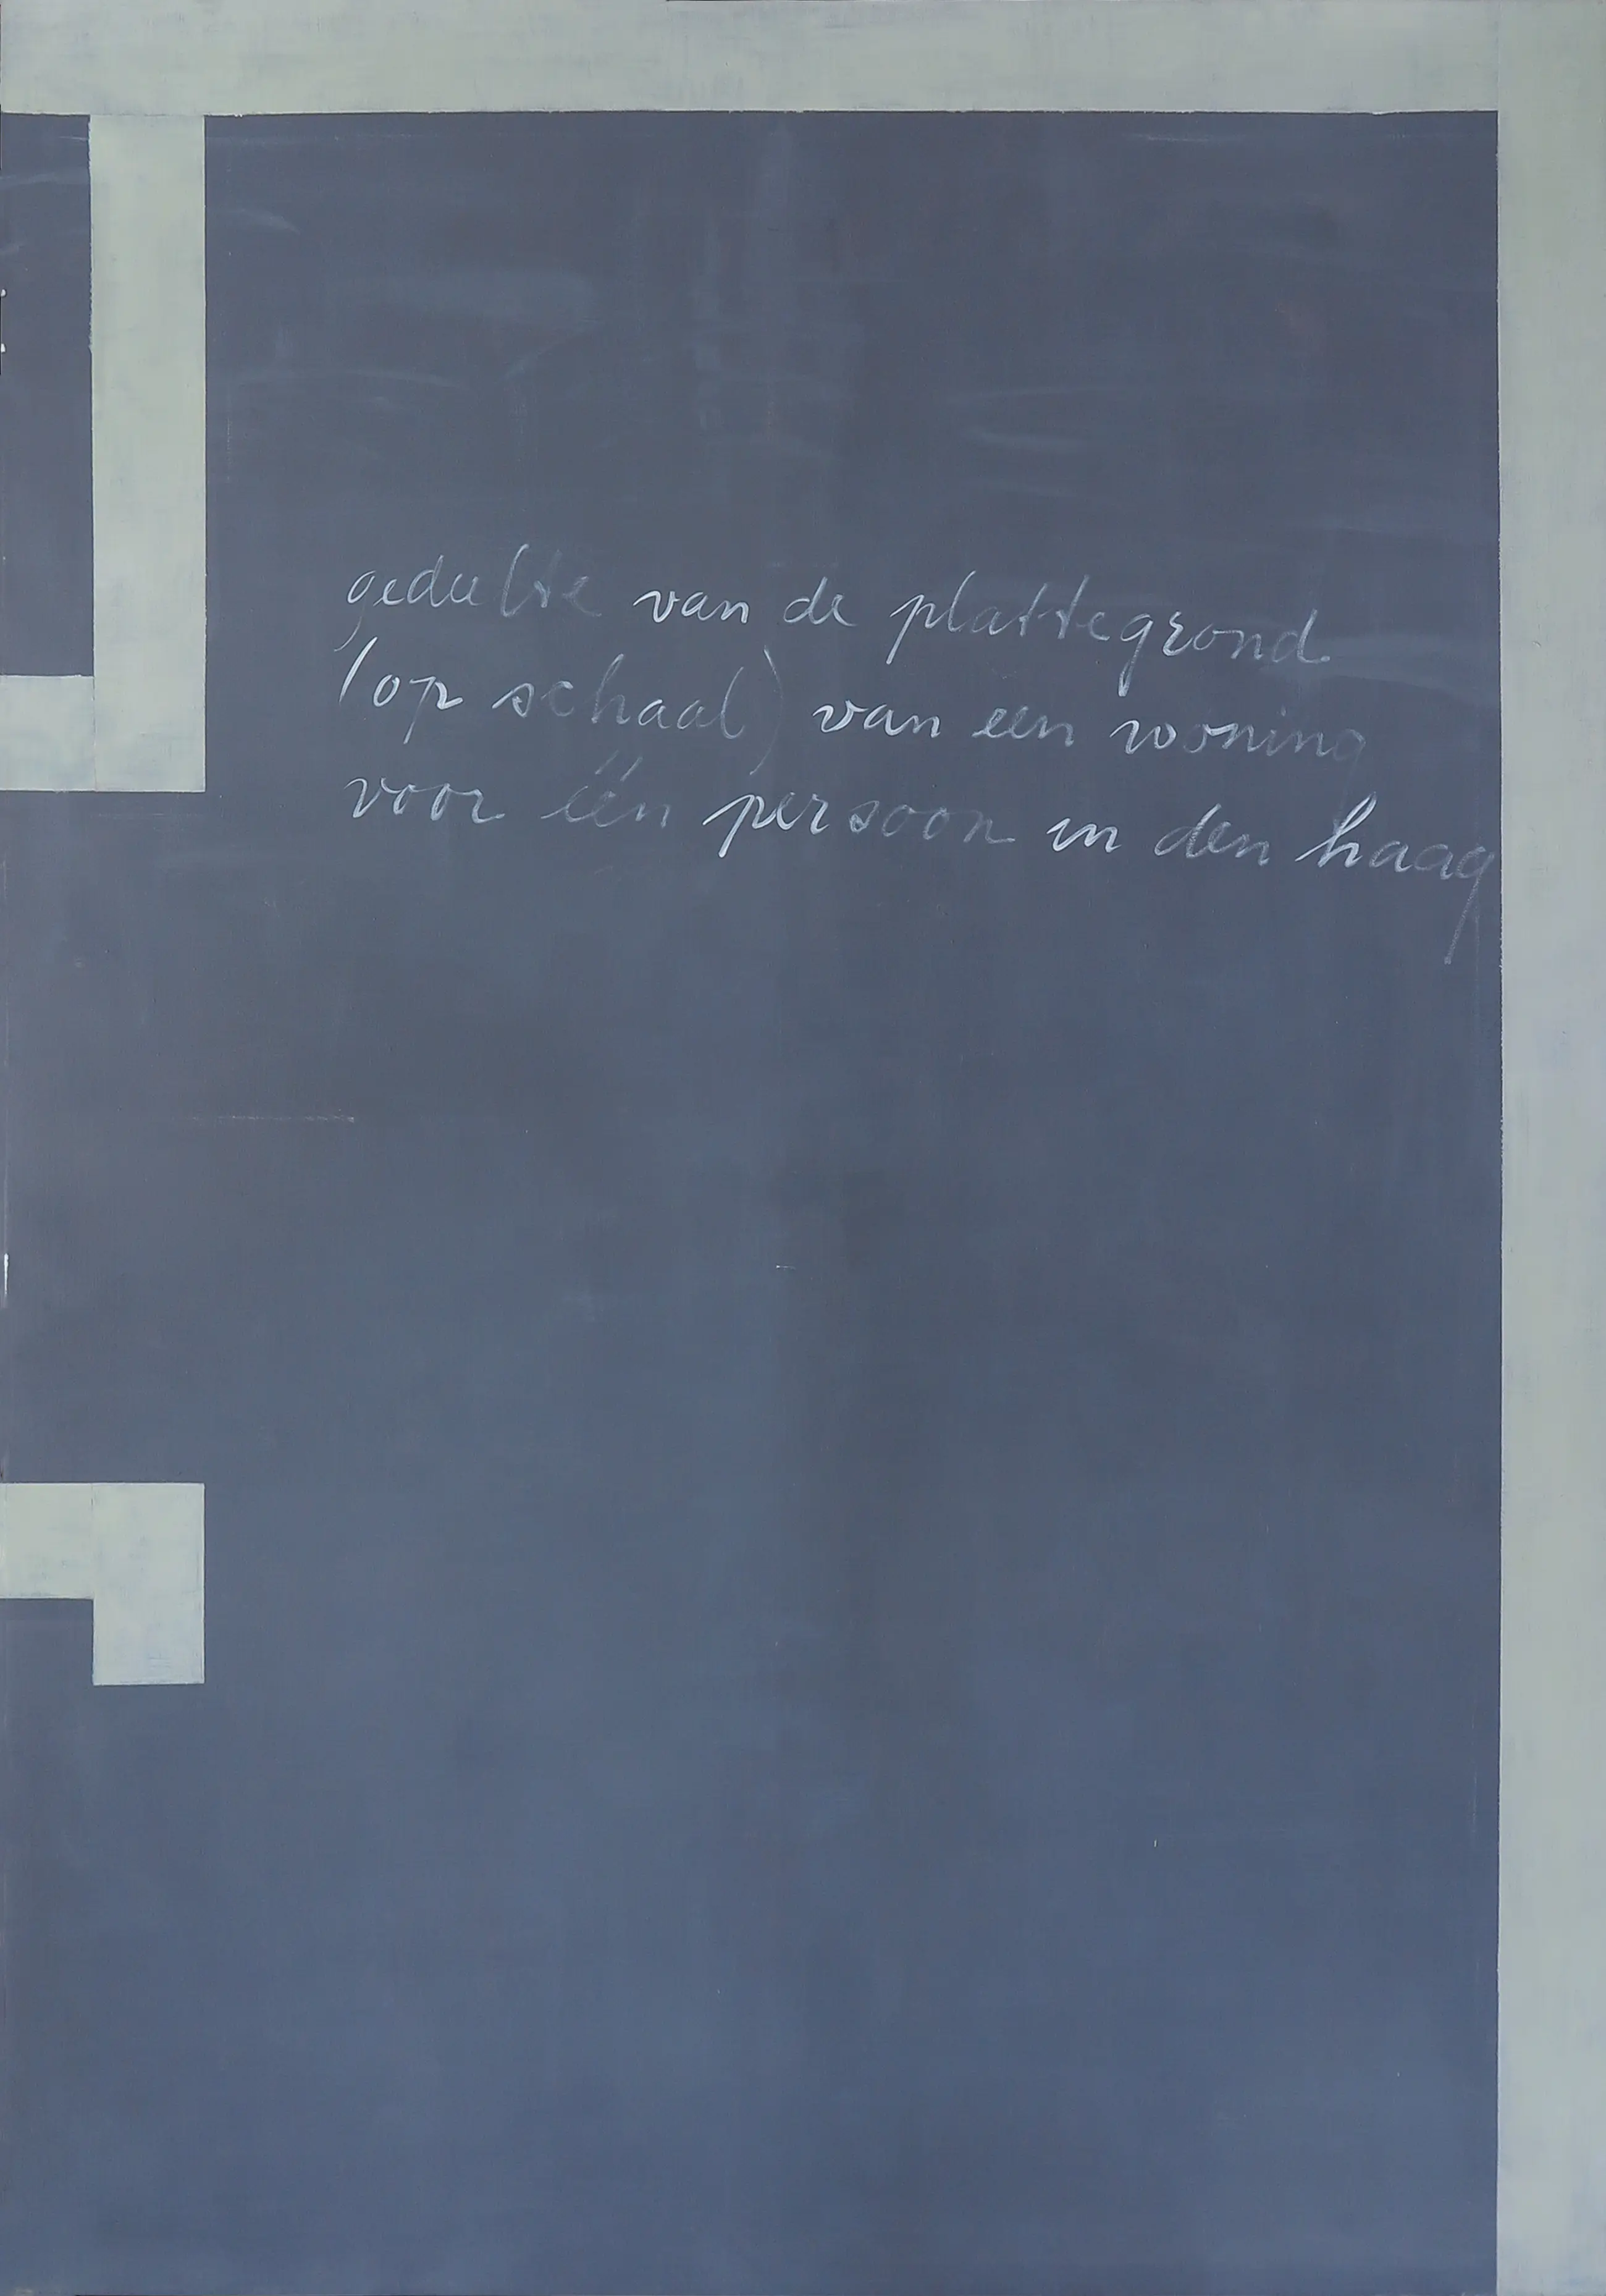 gedeelte van de plattegrond
(op schaal) van een woning
voor één persoon in den haag